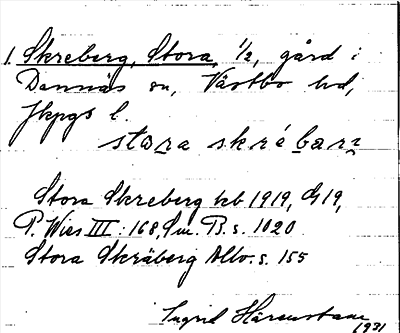 1. Skreberg, Stora, 1/2, gård i
Dannäs sn, Västbo hd,
Jkpgs l.
stora skrébærʒ
Stora Skreberg kb 1919, G19,
P. Wies III: 168, Sm. B. s. 1020
Stora Skräberg Allo. s. 155
Ingrid
1931